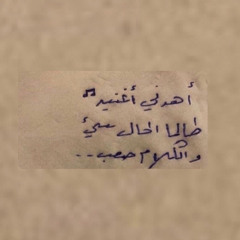 أهدني أغنية♫
طالما الحال سيئ
والكلام صعب..